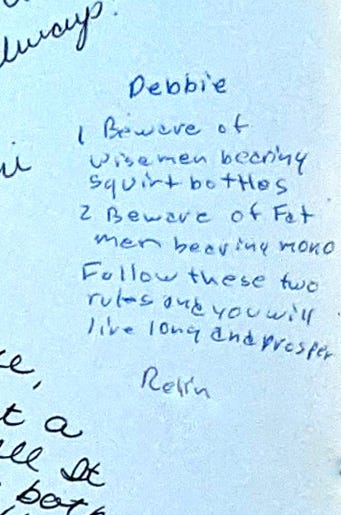 always.
Debbie
1 Beware of
wisemen bearing
squirt bottles
2 Beware of Fat
men bearing mono
Follow these two
rules and you will
live long and prosper
Robin
t a
ll It
both